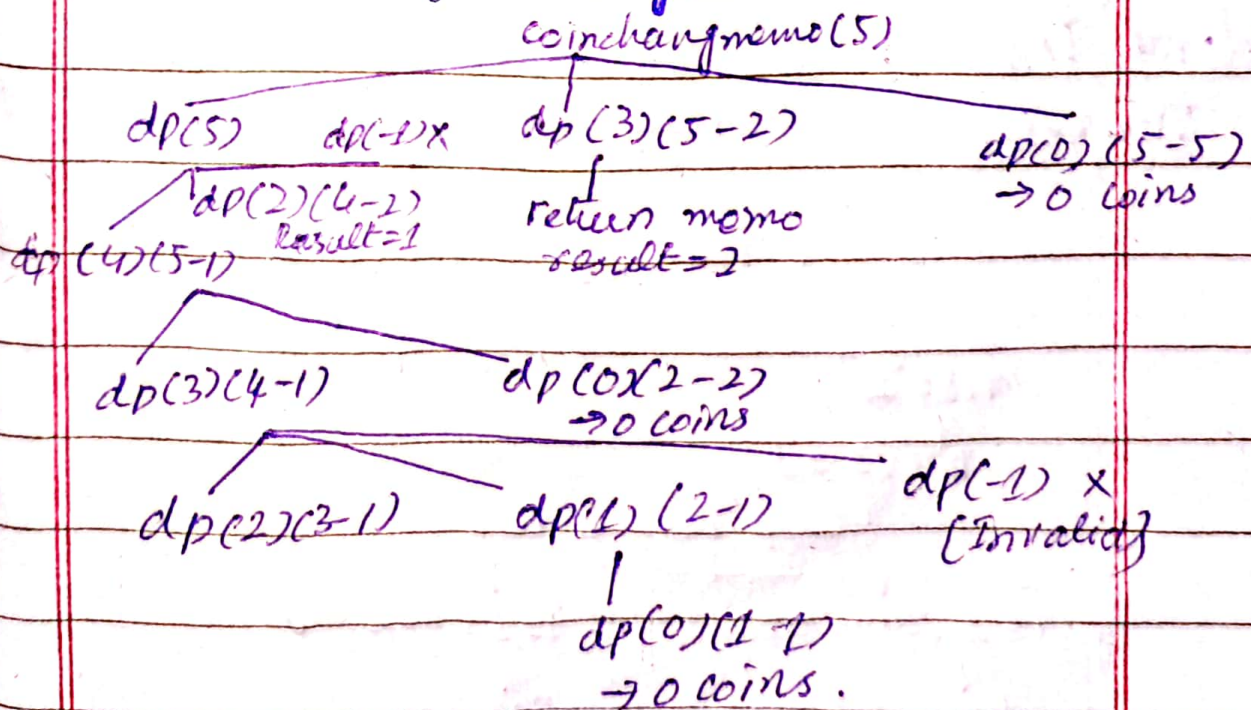 coinchangmemo(5)
dp(5) dp(-1)x dp(3)(5-2) dp(0)(5-5)
→0 coins
dp(2)(4-2)
Result=1
return memo
result=2
dp(4)(5-1)
dp(3)(4-1) dp(0)(2-2)
→0 coins
dp(2)(3-1) dp(1)(2-1) dp(-1) x
[Invalid]
dp(0)(1-1)
→0 coins.